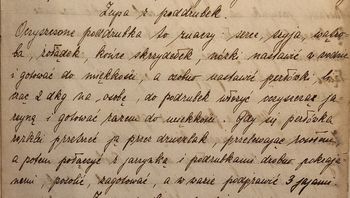 Zupa z poddrubek.
Oczyszczone poddrubka to znaczy: serce, szyja, wątro-
ba, żołądek, końce skrzydełek, nóżki nastawić w wodzie
i gotować do miękkości, a osobno nastawić perłówki li-
cząc 2 dkg na osobę, do podrubek włożyć oczyszczoną ja-
rzynę i gotować razem do miękkości. Gdy się perłówka
rozklei przetrzeć ją przez druszlak, przelewając rosołem,
a potem połączyć z jarzynką i podrubkami drobno pokraja-
nemi, posolić, zagotować, a w wazie podprawić 3 jajami.